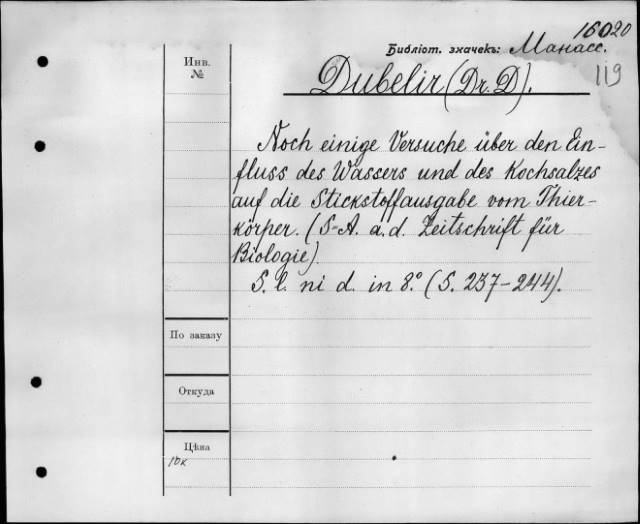 16020
Библіот. значекъ: Манасс.
119
Инв.
№
Dubelir (Dr. D).
Noch einige Versuche über den Ein-
fluss des Wassers und des Kochsalzes
auf die Stickstoffausgabe vom Thier-
körper. (S-A. a. d. Zeitschrift für
Biologie).
S. l. ni d. in 8.° (S. 237-244).
По заказу
Откуда
Цѣна
10к